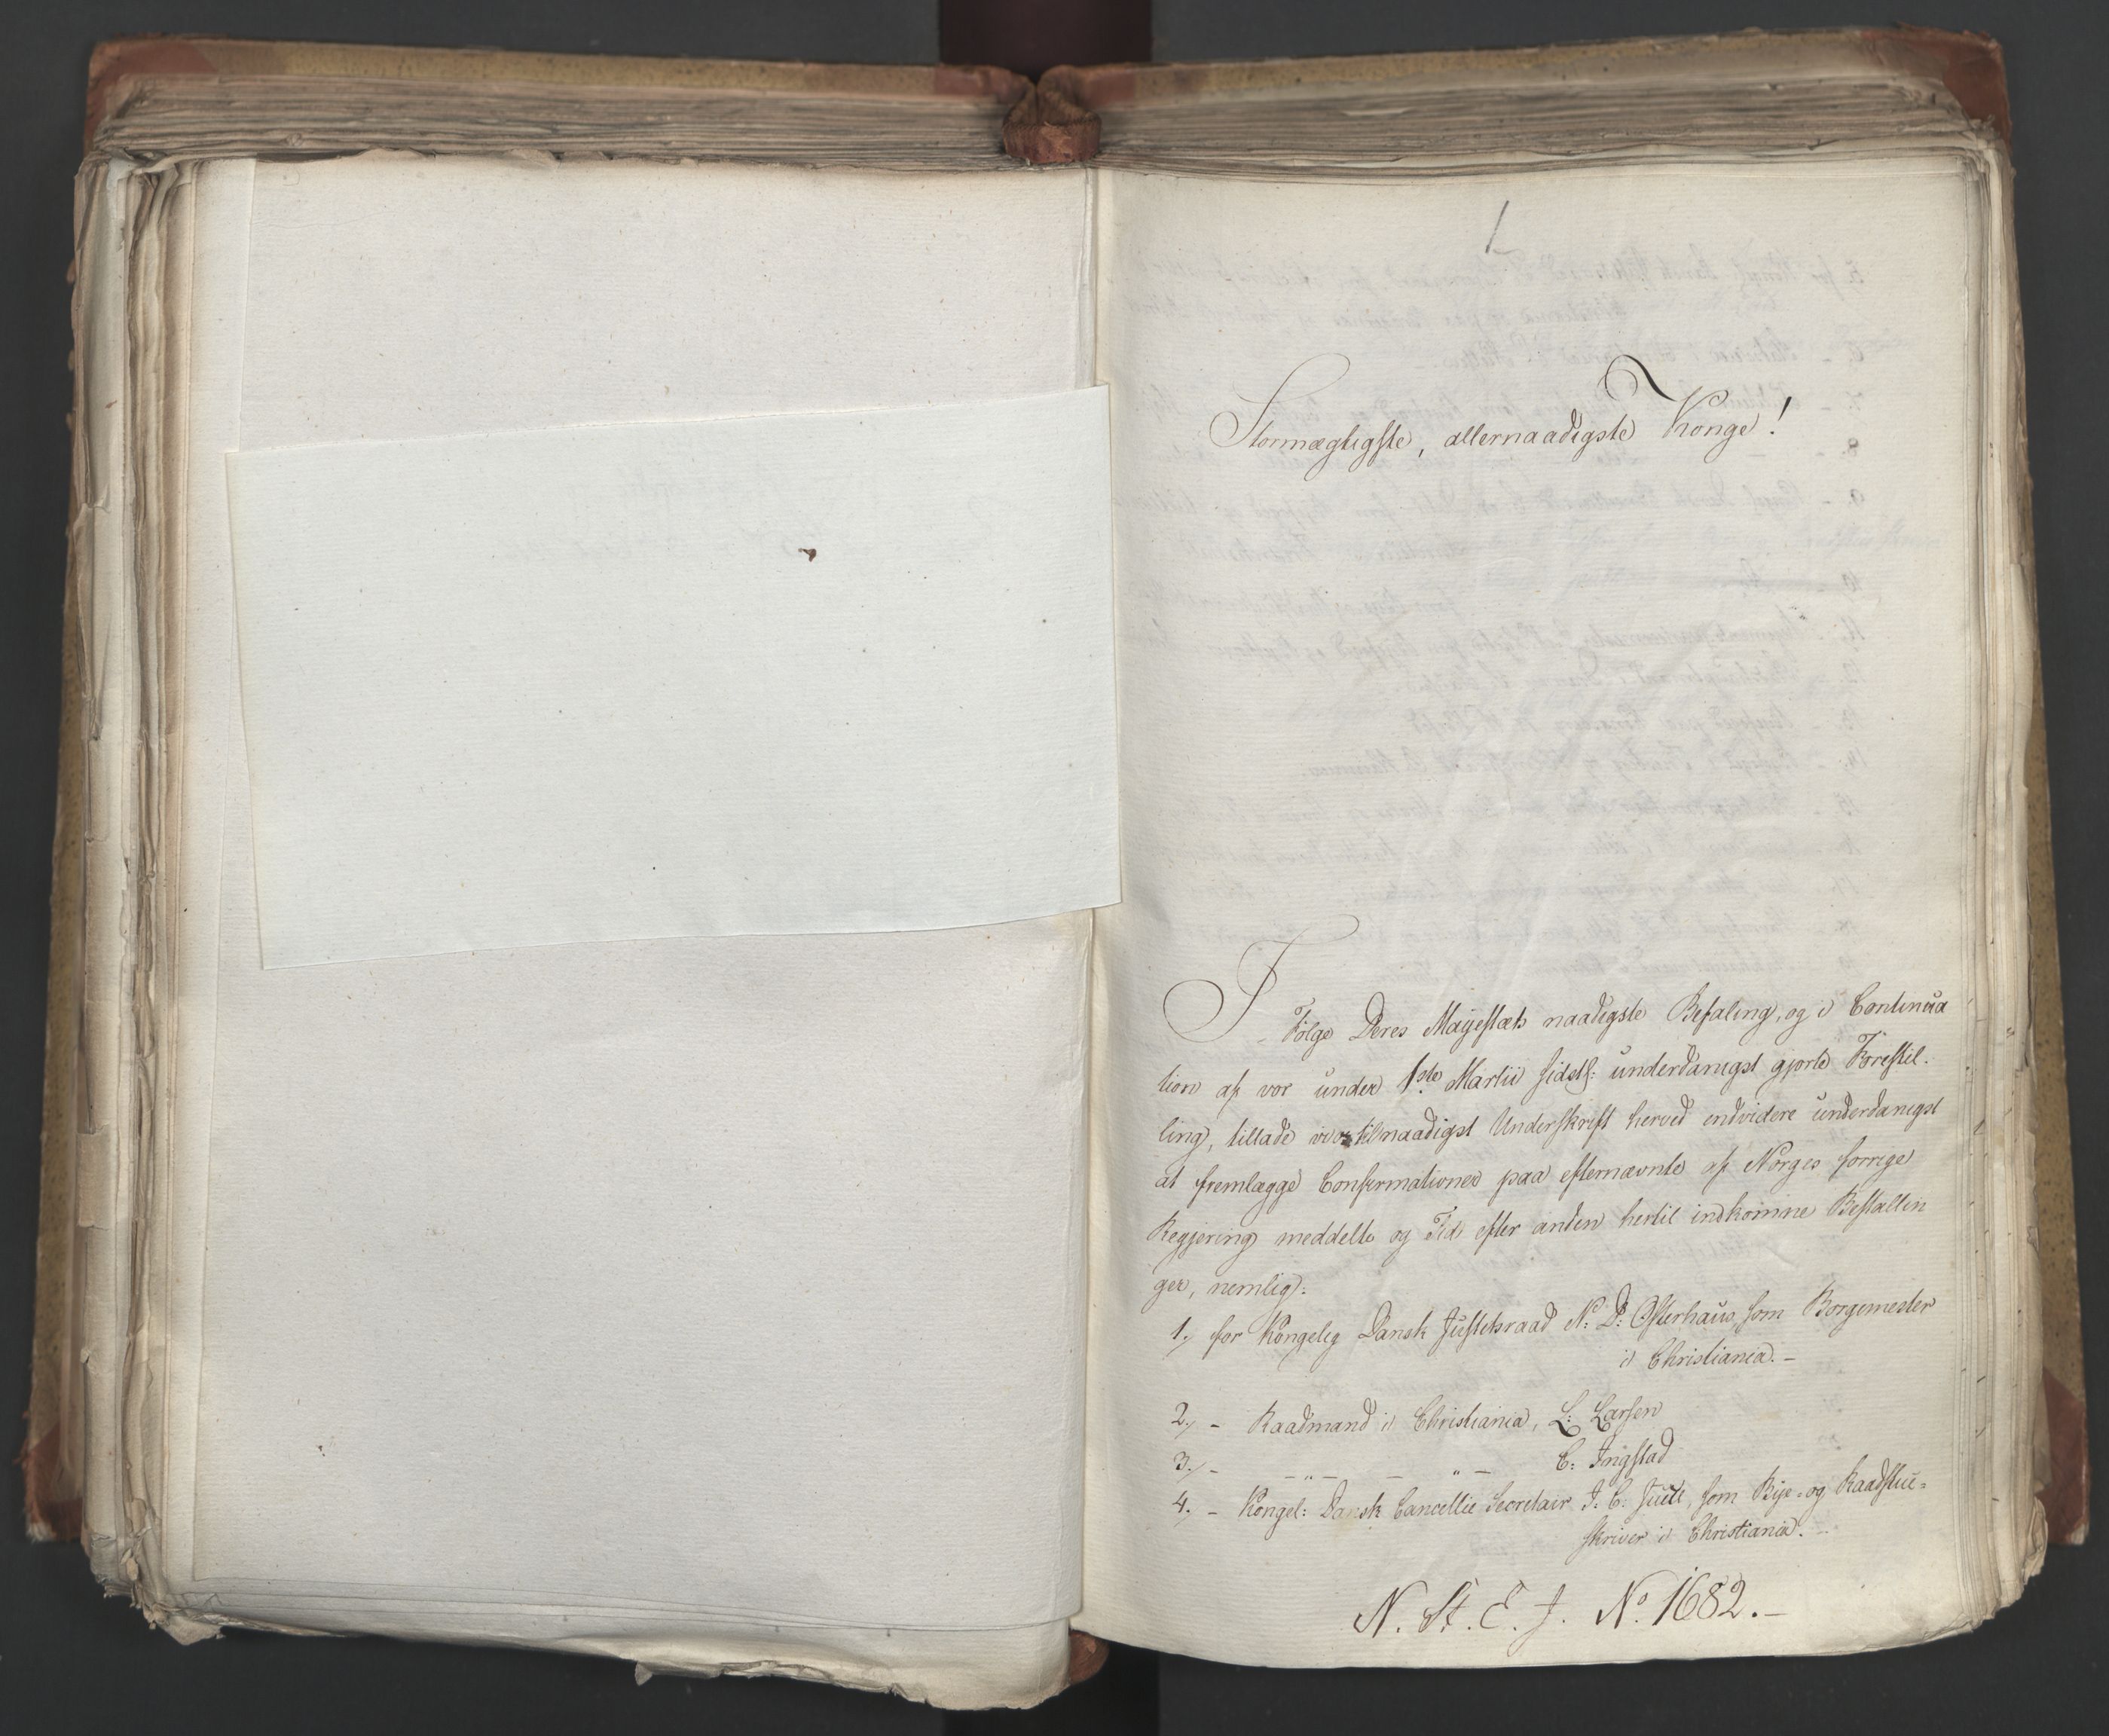 1
Stormægtigste, allernaadigste Konge!
I Følge Deres Majestæts naadigste Befaling, og i Continua
tion af vor under 1ste Martii sidstl: underdanigst gjorte Forestil-
ling, tillade vi os til naadigst Underskrift herved endvidere underdanigst
at fremlægge Confirmationer paa efternævnte af Norges forrige
Regjering meddelte og Tid efter anden hertil indkomne Bestallin
ger, nemlig:
1., for Kongelig Dansk Justitsraad N: D: Osterhaus, som Borgemester
i Christiania.-
2., - Raadmand i Christiania, L: Larsen
3., - -"- - "- C: Ingstad
4., - Kongel: Dansk Cancellie Secretair J: C: Juul, som Bye- og Raadstue-
skriver i Christiania.-
N. St. E. J. No. 1682.-